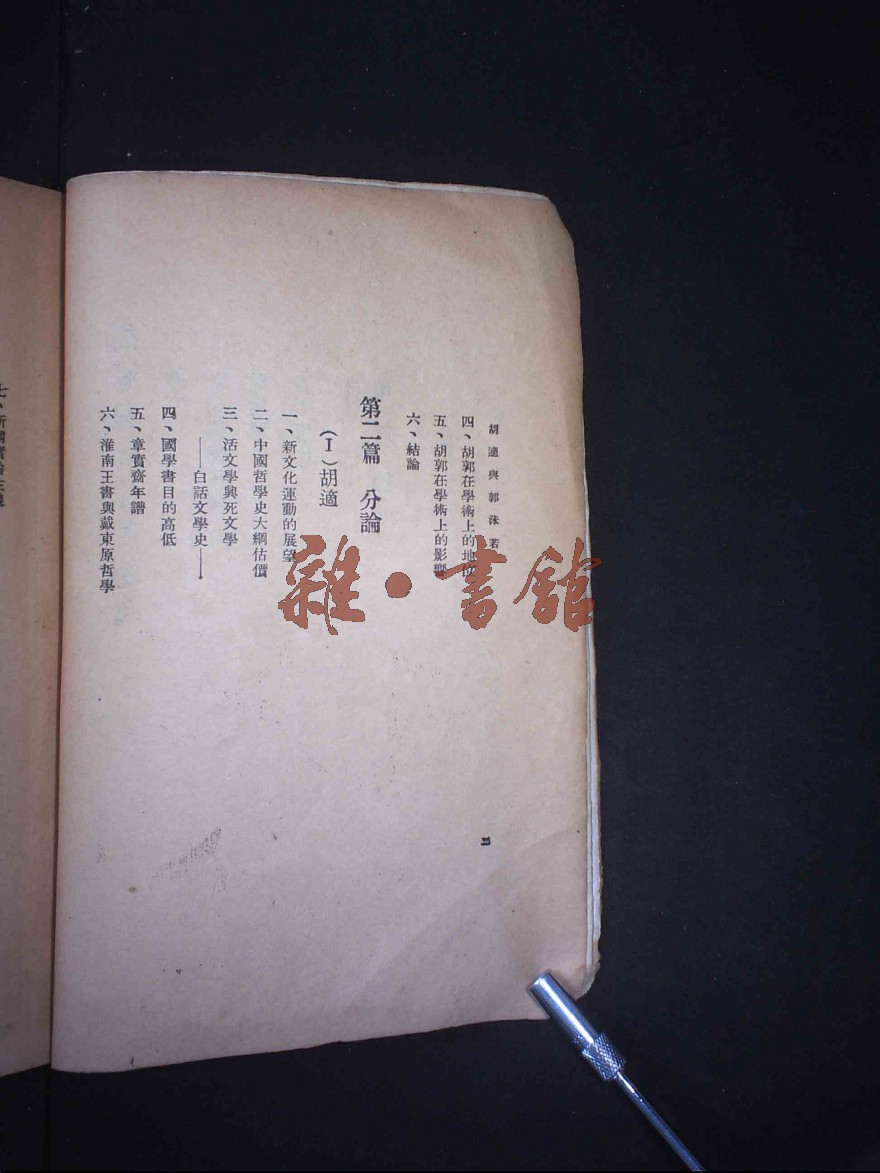 胡適與郭沫若
四、胡郭在學術上的地位
五、胡郭在學術上的影響
六、結論
第二篇 分論
（I）胡適
一、新文化運動的展望
二、中國哲學史大綱估價
三、活文學與死文學
——白話文學史——
四、國學書目的高低
五、章實齋年譜
六、淮南王書與戴東原哲學
二
雜·書館